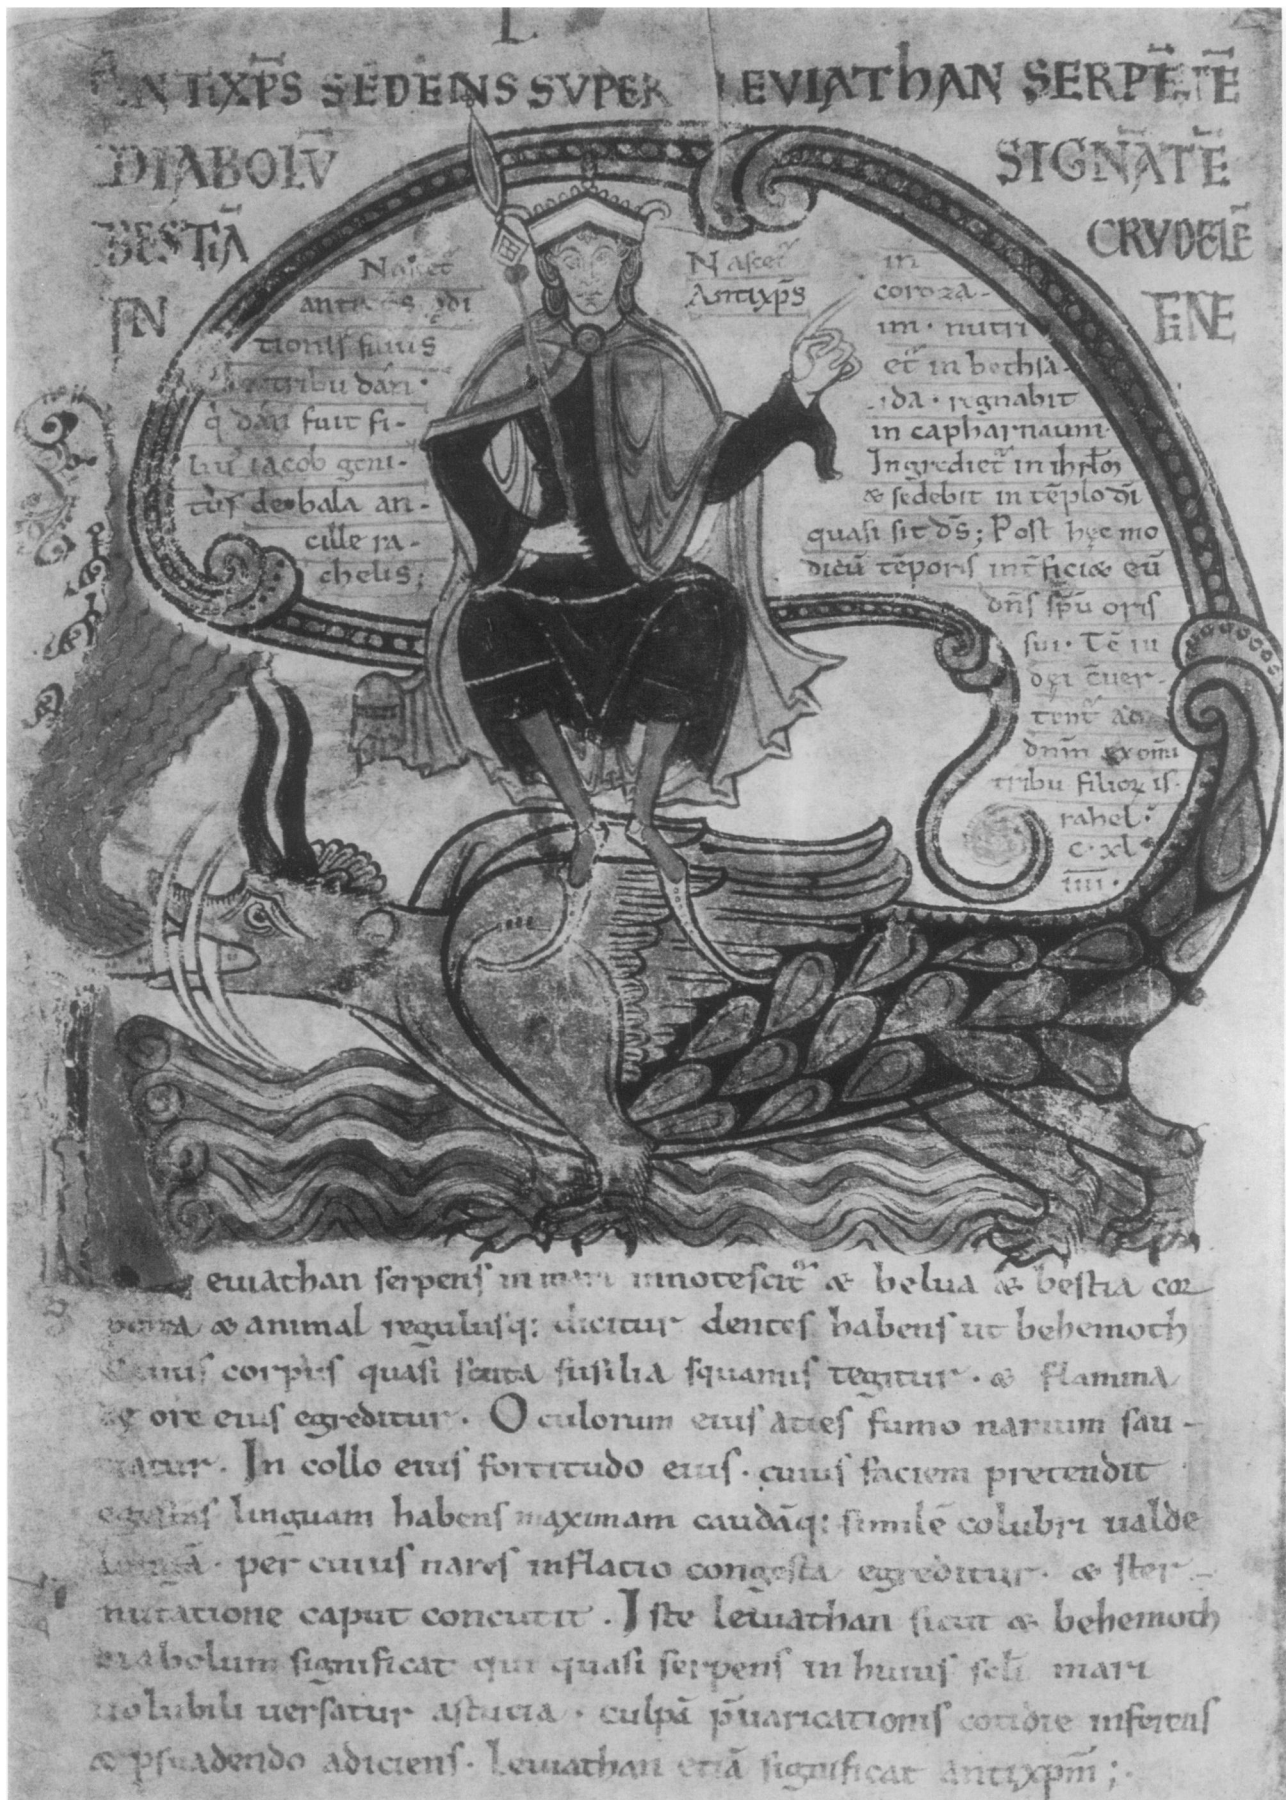 L
ANTIXP̄S SEDENS SVPER LEVIATHAN SERPĒTĒ
DIABOLV̄ SIGNĀTĒ
BESTIĀ CRVDELĒ
IN FINE
Nascet᷑
antix̄p̄s p̄di
tionis filius
tribu dan·
q̄ dan fuit fi-
lius iacob geni-
tus de bala an-
cille ra-
chelis;
Nascet᷑
Antixp̄s
in
coroza-
im· nutri
et᷑ in bethsa-
ida· regnabit
in capharnaum·
Ingrediet᷑ in ihrlm̄
& sedebit in tēplo dī
quasi sit d̄s; Post hęc mo
dicū tēporis int̄ficiæ eū
dn̄s sp̄u oris
sui· Tē iu
dęi c̄uer-
tent᷑ ad
dn̄m ex om̄i
tribu filioꝝ is-
rahel·
c·xl
iiii·
Leuiathan serpens in mari innotescit᷑ & belua & bestia cor
porea & animal regulusq; dicitur dentes habens ut behemoth
cuius corpus quasi scuta fusilia squamis tegitur· & flamma
ex ore eius egreditur· Oculorum eius acies fumo narium sau-
ciatur· In collo eius fortitudo eius· cuius faciem precedit
egestas linguam habens maximam caudāq; similē colubri ualde
longā· per cuius nares inflatio congesta egreditur· & ster-
nutatione caput concutit· Iste leuiathan sicut & behemoth
diabolum significat qui quasi serpens in huius sc̄li mari
uolubili uersatur astucia· culpā p̄uaricationis cotidie inferens
& psuadendo adiciens· Leuiathan etiā significat antixp̄m;